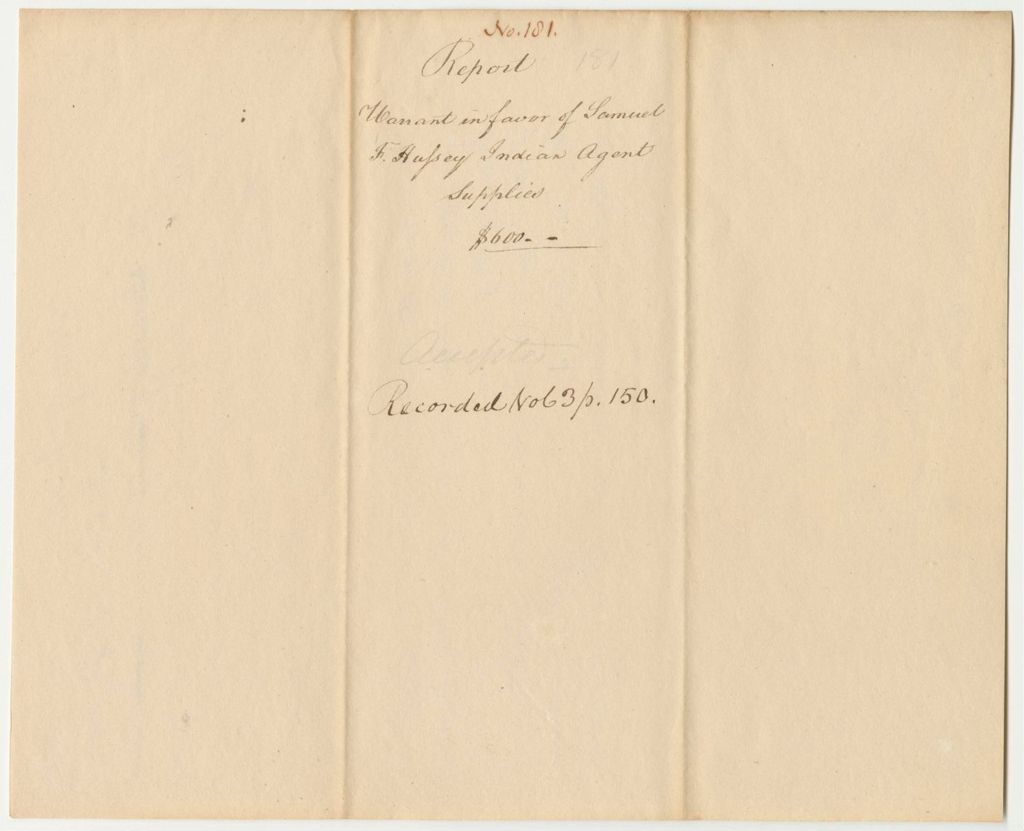 No. 181.
Report 181
Warrant in favor of Samuel
F. Hussey Indian Agent
Supplies
$600 - -
Accepted -
Recorded Vol 3 p. 150.